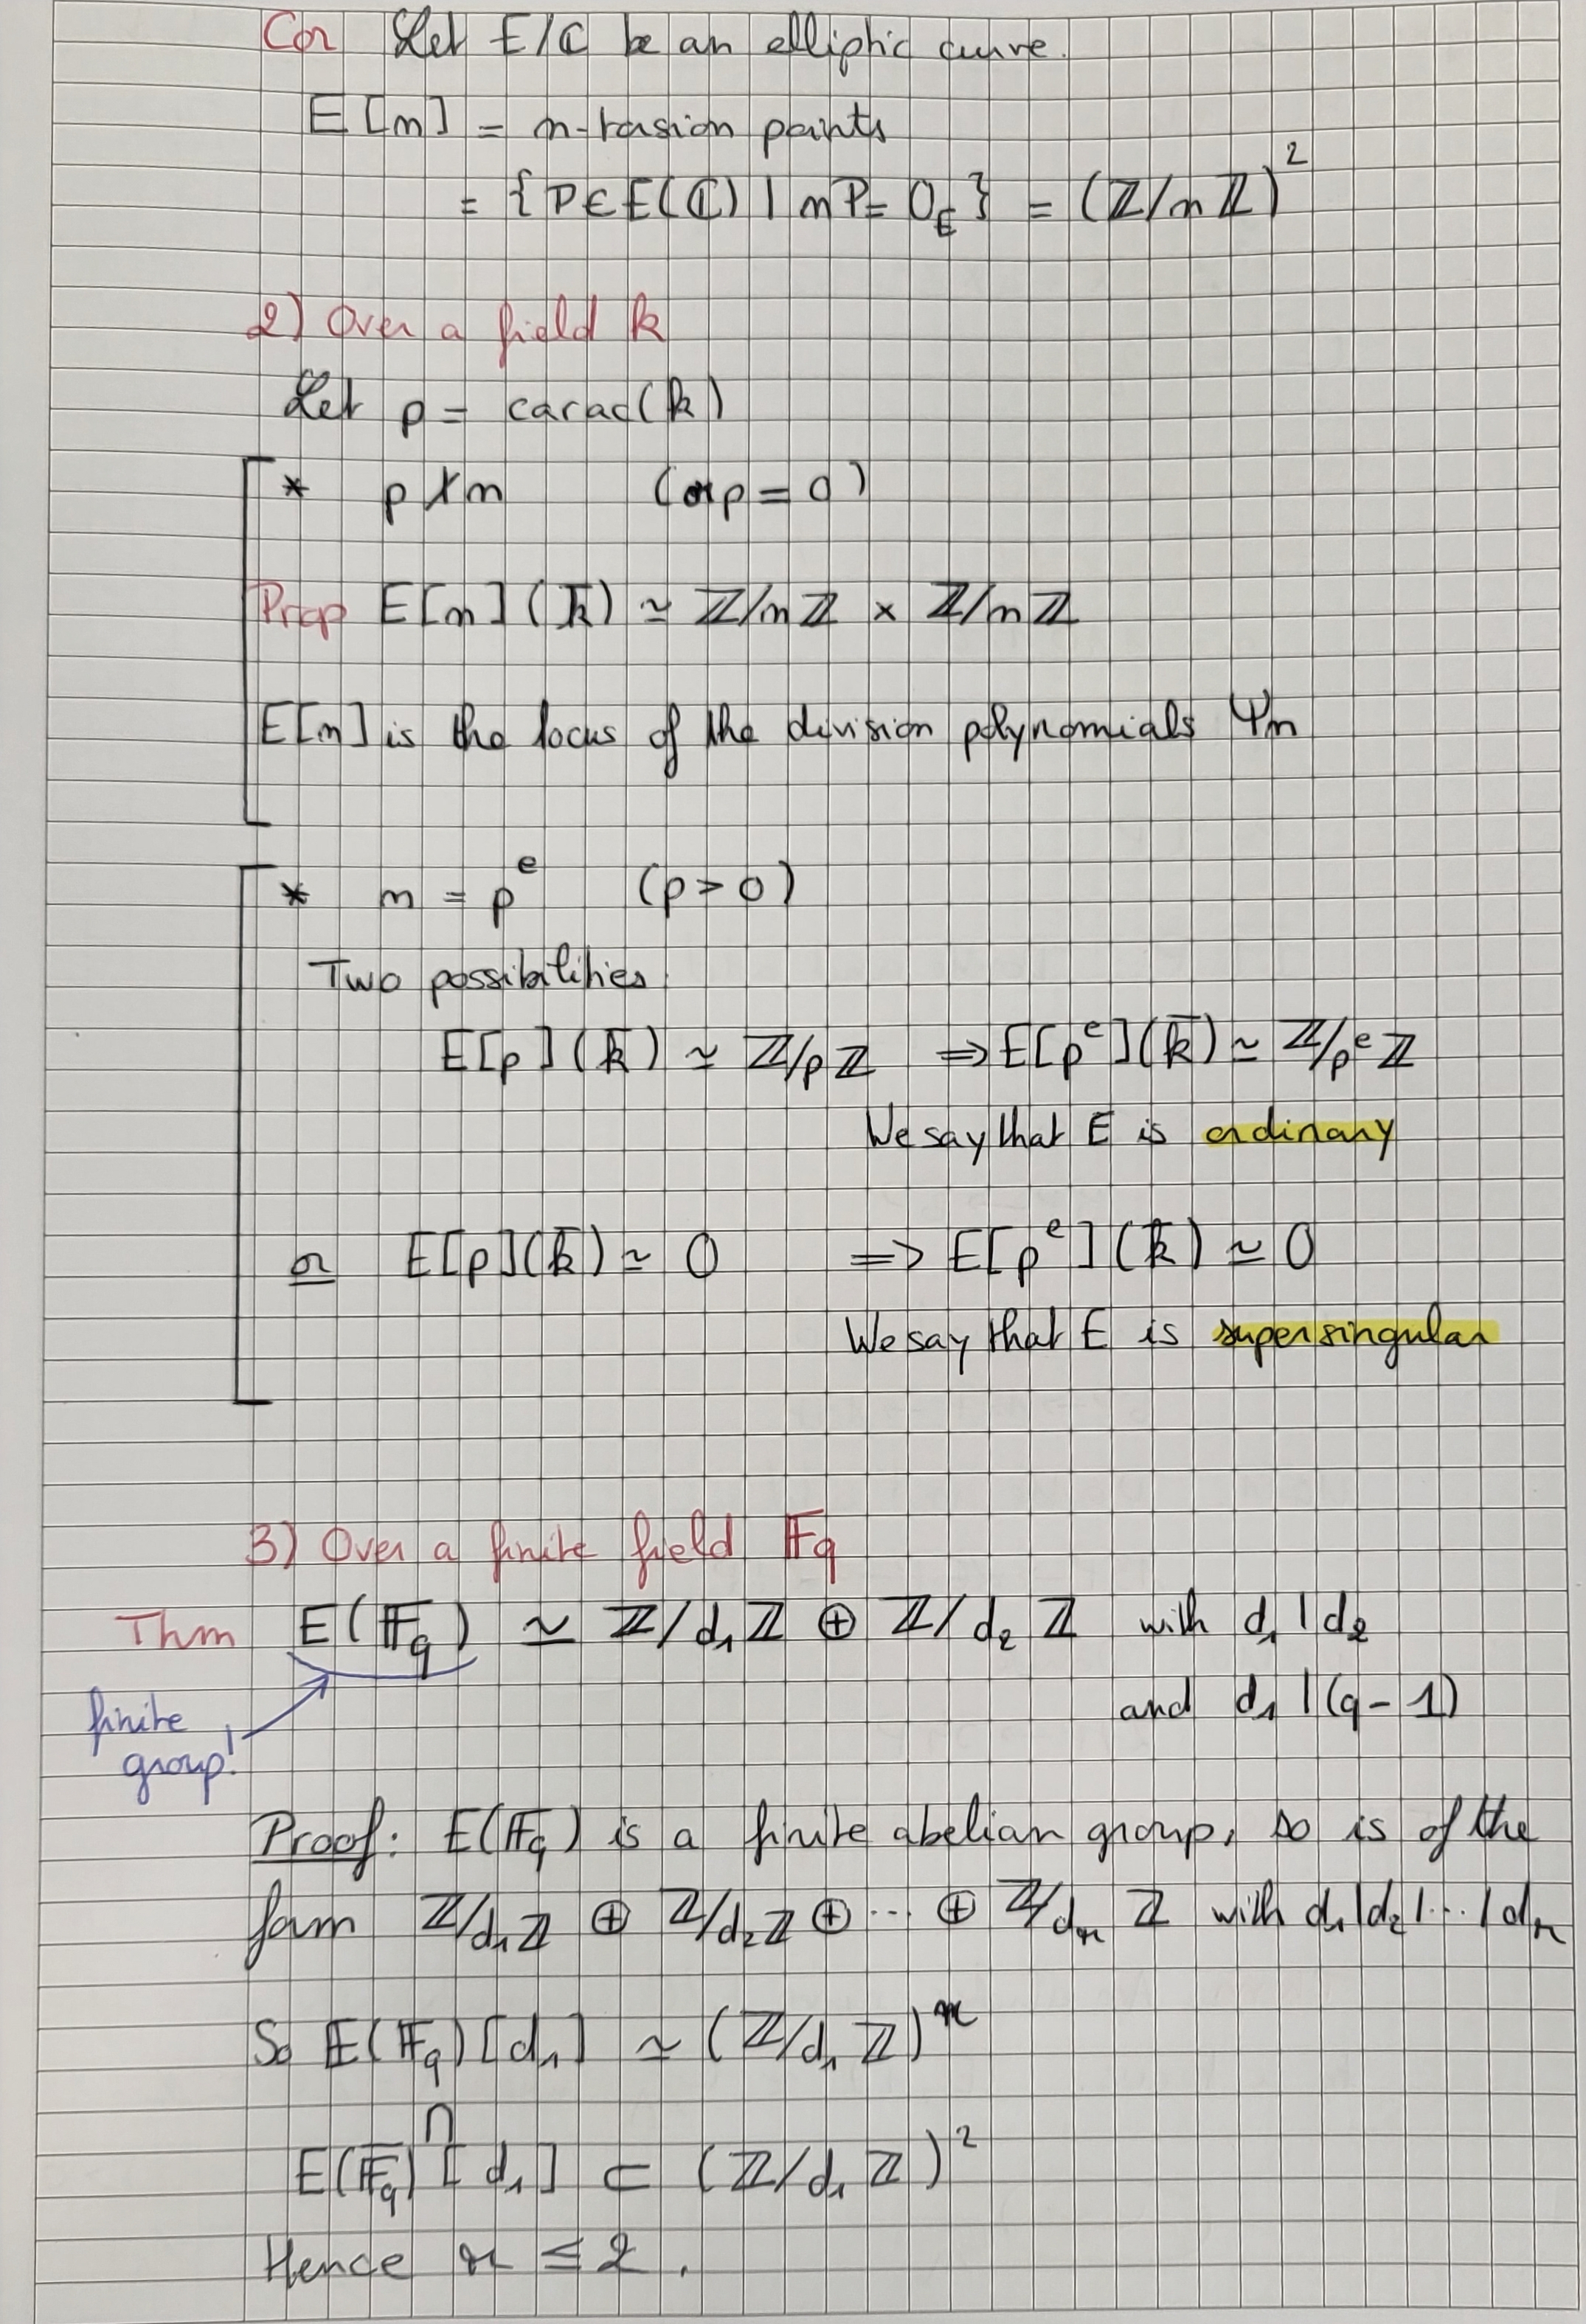 Cor Let E/ℂ be an elliptic curve.
E[m] = m-torsion points
= {P∈E(ℂ) | mP = O_E} = (ℤ/mℤ)²
2) Over a field k
Let p = carac(k)
* p∤m (or p = 0)
Prop E[m](k̄) ≃ ℤ/mℤ × ℤ/mℤ
E[m] is the locus of the division polynomials Ψm
* m = p^e (p > 0)
Two possibilities
E[p](k̄) ≃ ℤ/pℤ ⇒ E[p^e](k̄) ≃ ℤ/p^eℤ
We say that E is ordinary
or E[p](k̄) ≃ 0 ⇒ E[p^e](k̄) ≃ 0
We say that E is supersingular
3) Over a finite field 𝔽q
Thm E(𝔽q) ≃ ℤ/d₁ℤ ⊕ ℤ/d₂ℤ with d₁|d₂
and d₁|(q-1)
finite
group!
Proof: E(𝔽q) is a finite abelian group, so is of the
form ℤ/d₁ℤ ⊕ ℤ/d₂ℤ ⊕ ... ⊕ ℤ/d_rℤ with d₁|d₂|...|d_r
So E(𝔽q)[d₁] ≃ (ℤ/d₁ℤ)^r
∩
E(𝔽̄q)[d₁] ⊂ (ℤ/d₁ℤ)²
Hence r ≤ 2.